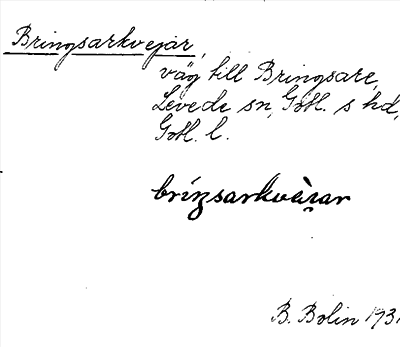 Bringsarkvejar,
väg till Bringsare,
Levede sn, Gotl. s hd,
Gotl. l.
bríŋsarkvὰi̯ar
B. Bolin 1931